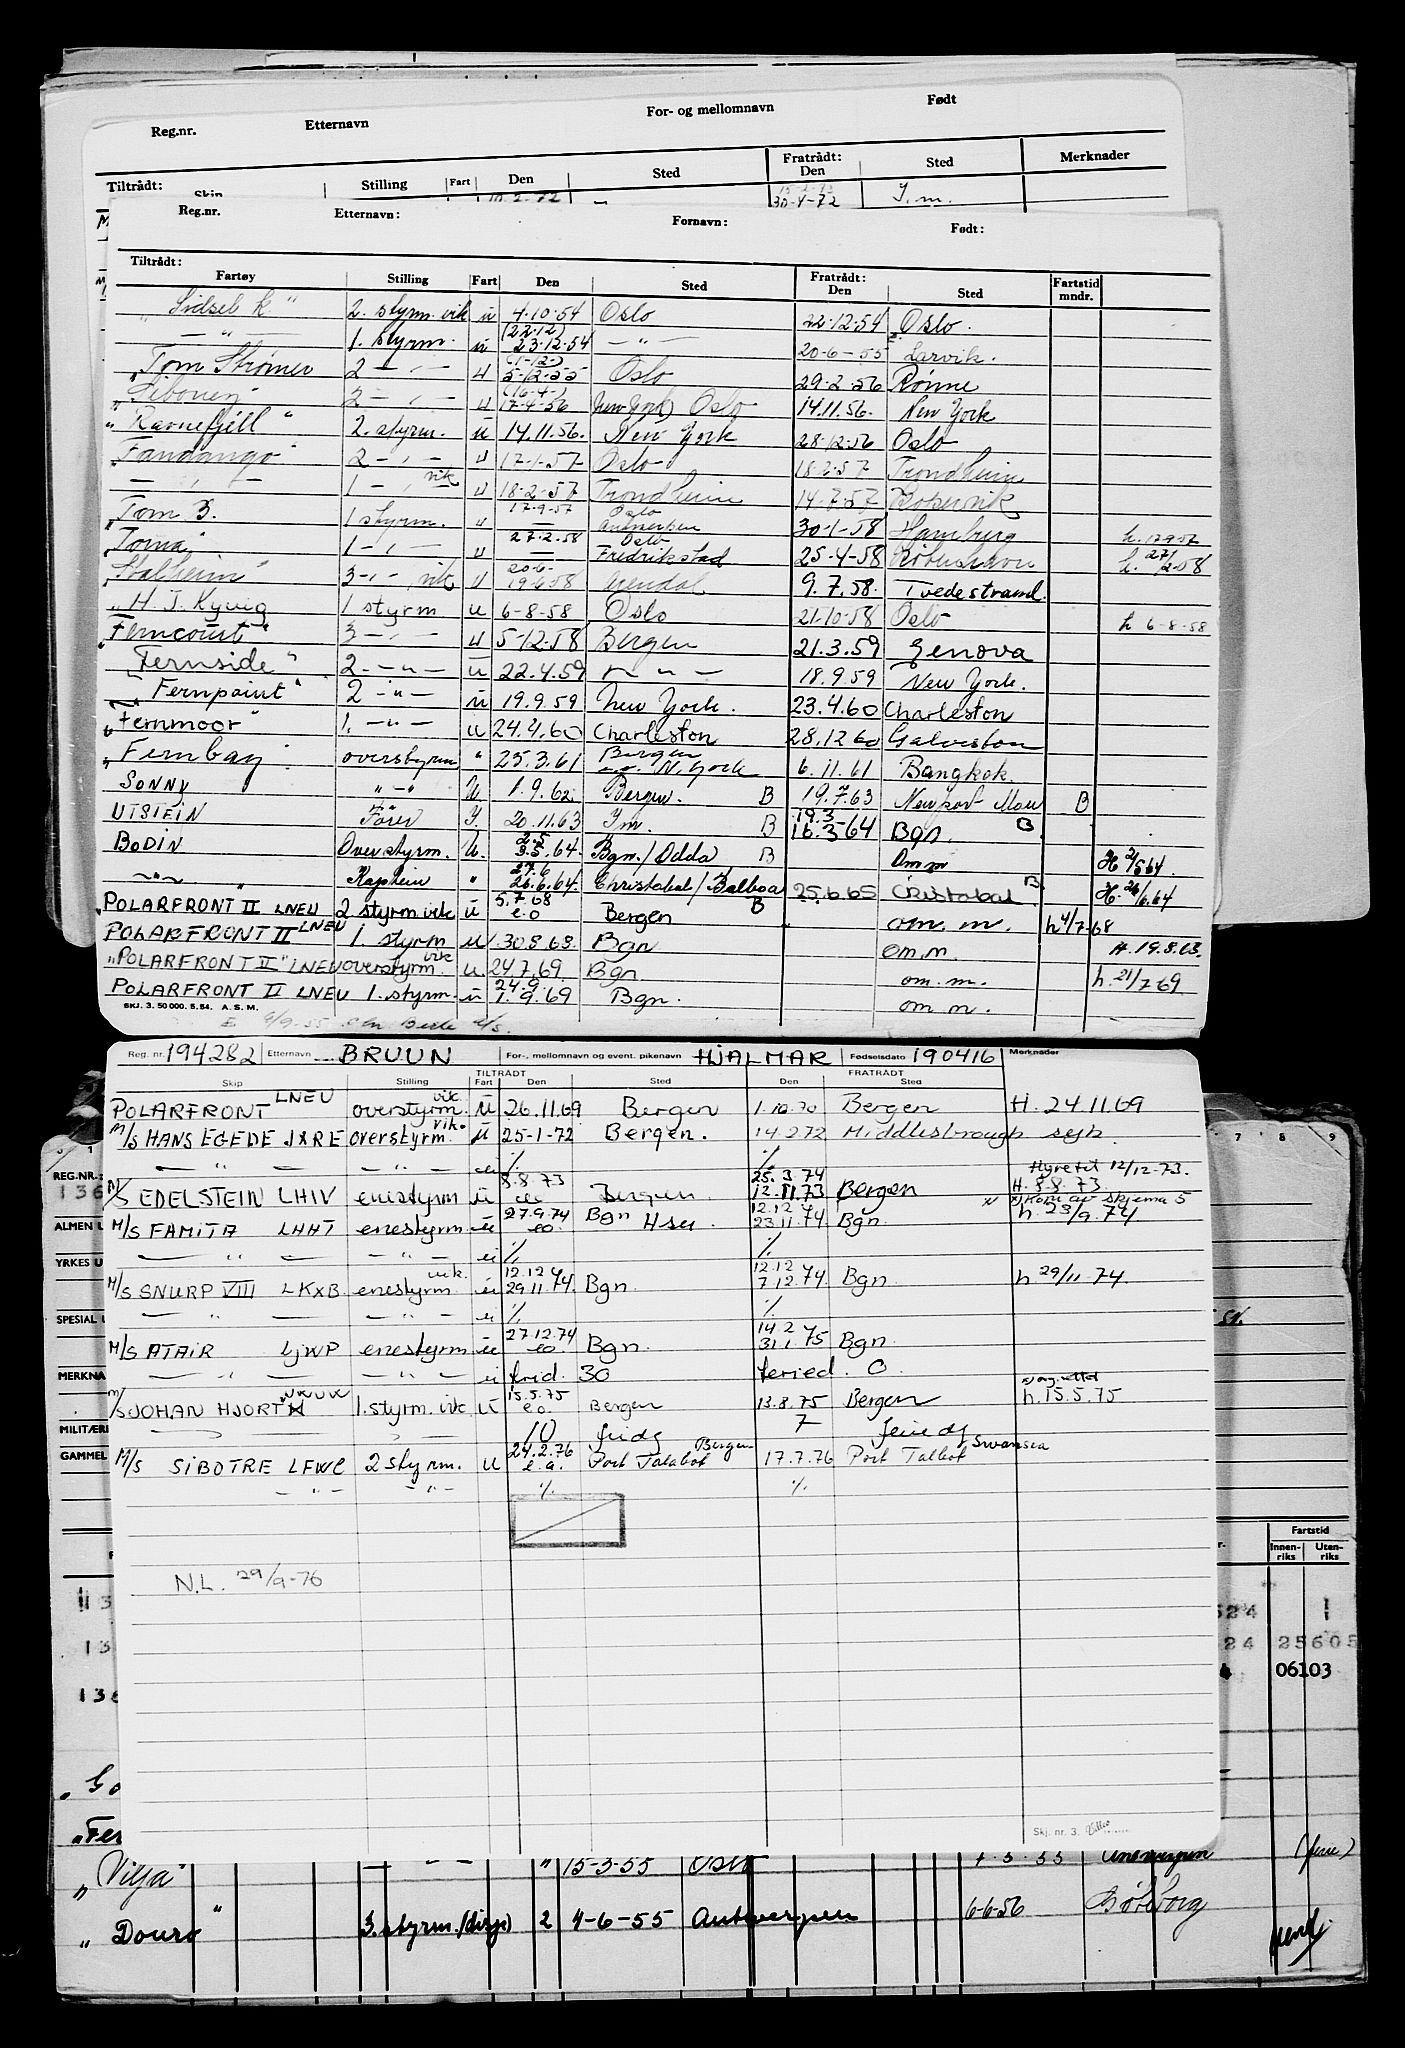 Reg.nr. Etternavn For- og mellomnavn Født
Tiltrådt: Stilling Fart Den Sted Fratrådt: Den Sted Merknader
30-4-72 I.m.
Reg.nr. Etternavn: Fornavn: Født:
Tiltrådt: Fratrådt:
Fartøy Stilling Fart Den Sted Den Sted Fartstid mndr.
"Sidsel K." 2. styrm. vik u 4.10.54 Oslo 22.12.54 Oslo.
— " — 1. styrm. u (22.12) 23.12.54 — " — 20-6-55 Larvik.
"Tom Strømer 2 — " — u (1-12-) 5-12-55 Oslo 29-2-56 Rönne
"Siboney 2 — " — u (16-4-) 17-4-56 (New York) Oslo 14.11.56. New York
"Ravnefjell" 2. styrm. u 14.11.56. New York 28-12-56 Oslo
"Fandango" 2 — " — u 17-1-57 Oslo 18-2-57 Trondheim
— " — 1 — " — vik u 18-2-57 Trondheim 14-7-57
"Tom B. 1 styrm. u 17-9-57 Oslo Antwerpen 30-1-58 Hamburg h. 17-9-57
"Toma" 1 — " — u 27-2-58 Oslo Fredrikstad 25-4-58 København h. 27/2-58
"Stalheim" 3 — " — vik u 20-6- 19-6-58 Arendal 9.7.58. Tvedestrand.
"H. J. Kyvig 1 styrm u 6-8-58 Oslo 21-10-58 Oslo h 6-8-58
"Ferncourt" 3 — " — u 5-12-58 Bergen 21.3.59 Genova
"Fernside" 2 — " — u 22.4.59 — " — 18.9.59 New York.
"Fernpoint" 2 — " — u 19.9.59 New York. 23.4.60 Charleston
"Fernmoor" 1. — " — u 24.4.60 Charleston 28.12 60 Galveston
"Fernbay" overstyrm " 25.3.61 Bergen N. York 6.11.61 Bangkok.
SONNY " - " - U 1.9.62. Bergen. B 19.7.63 Newport Mon B
UTSTEIN Förer I. 20.11.63 I m. B 19.3 16.3-64 Bgn. B
BODIN Overstyrm. U. 2.5 3.5.64. Bgn./Odda B Omm H. 2/5 64
— " — Kaptein " 27.6 26.6.64. Christobal/Balboa B 25.6.65 Cristobal B H. 26/6.64
POLARFRONT II LNEU 2 styrm vik u 5.7.68 e.o Bergen om. m. h 4/7-68
POLARFRONT II LNEU 1. styrm u 30.8.68. Bgn om.m. H. 19.8.68.
"POLARFRONT II" LNEU overstyrm. vik u. 24.7.69 Bgn om.m. h. 21/7 69
POLARFRONT II LNEU 1. styrm. u 24.9. 1.9.69 Bgn. om m.
SKJ. 3. 50 000. 5. 54. A.S.M.
Reg. nr. 194282 Etternavn BRUUN For-, mellomnavn og event. pikenavn HJALMAR Fødselsdato 190416 Merknader
TILTRÅDT FRATRÅDT
Skip Stilling Fart Den Sted Den Sted
POLARFRONT LNEU overstyrm. vik. u 26.11.69 Bergen 1.10.70 Bergen H. 24.11.69
M/S HANS EGEDE JXRE overstyrm. vik. u 25-1-72 Bergen. 14.2.72 Middlesbrough syk.
— " — — " — ei ./. ./. Hyretil 12/12-73.
M/S EDELSTEIN LHIV enestyrm u 8.8.73 eo Bergen 25.3.74 12.11.73 Bergen H. 8.8.73. x) Kom av skjema 5
M/S FAMITA LHHT enestyrm. u 27.9.74 eo. Bgn Hsu. 12.12.74 23.11.74 Bgn. h. 23/9.74
— " — — " — ei ./. ./.
M/S SNURP VIII LKXB enestyrm. vik. ei 12.12.74 29.11.74. Bgn. 12.12.74 7.12.74 Bgn. h 29/11-74.
— " — — " — ei ./. ./.
M/S ATAIR LJWP enestyrm u 27.12.74 eo Bgn. 14.2.75 31.1.75 Bgn.
— " — — " — ei frid 30 feried. 0.
M/S JOHAN HJORT 1. styrm. vik u 15.5.75 e.o. Bergen 13.8.75 Bergen h. 15.5.75
10 frid 7 feried
M/S SIBOTRE LFWC 2 styrm. u 24.2.76 e.o. Bergen Port Talabot 17.7.76 Port Talbot Swansea
— " — — " — ./. ./.
N.L. 29/9-76
Skj. nr. 3.
REG.NR.:
136
ALMEN U
YRKES U
SPESIAL U
MERKNA
MILITÆR
GAMMEL
7 8 9
Fartstid
Innen-riks Uten-riks
524 1
24 25605
06103
136
"Vilja" — " — " 15-3-55 Oslo Antwerpen (ferie)
"Douro" 3. styrm. (disp) 2 4-6-55 Antwerpen 6-6-56 Gøteborg